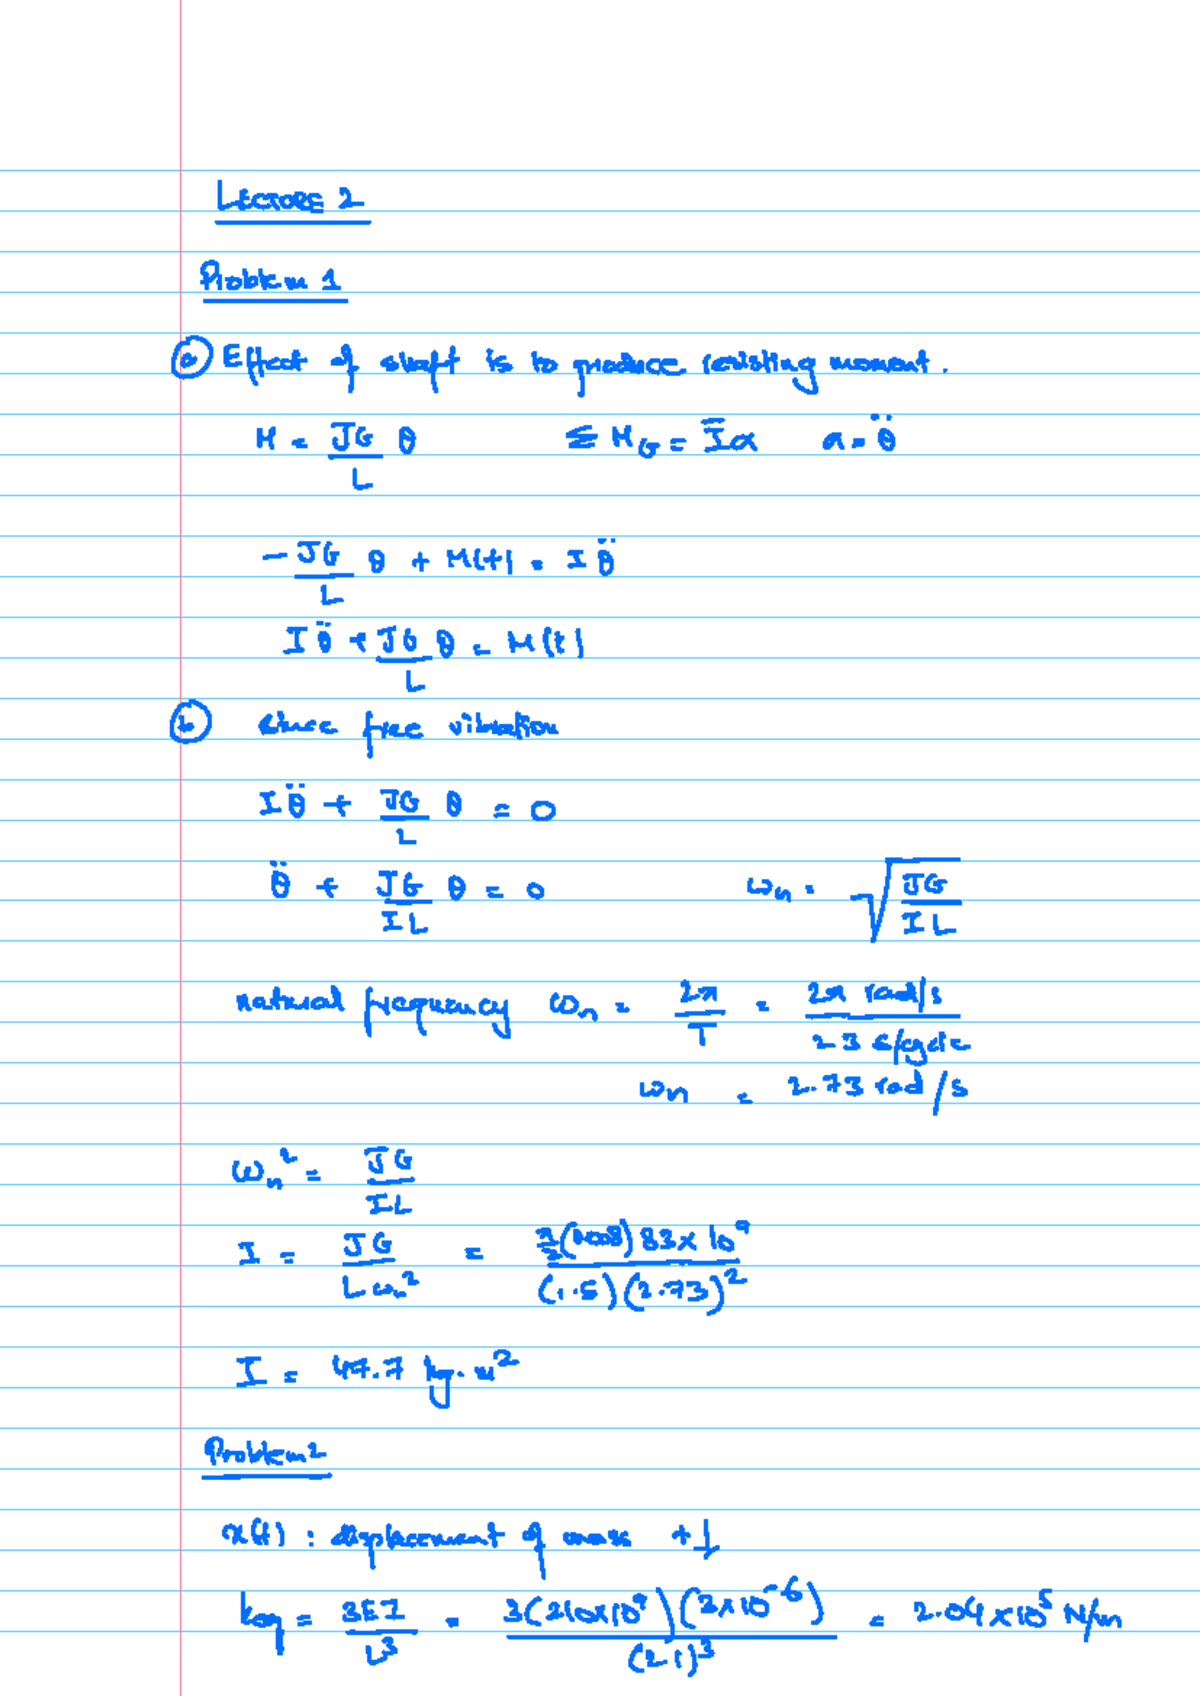 LECTURE 2
Problem 1
(a) Effect of shaft is to produce resisting moment.
M = JG/L θ    ΣM_G = Īα    α = θ̈
-JG/L θ + M(t) = I θ̈
I θ̈ + JG/L θ = M(t)
(b) Since free vibration
I θ̈ + JG/L θ = 0
θ̈ + JG/IL θ = 0    ω_n = √(JG/IL)
natural frequency ω_n = 2π/T = 2π rad/s / 2.3 s/cycle
ω_n = 2.73 rad/s
ω_n² = JG/IL
I = JG/Lω_n² = π/2 ( ) 83 × 10⁹ / (1.5)(2.73)²
I = 47.7 kg·m²
Problem 2
x(t) : displacement of mass +↓
k_eq = 3EI/L³ = 3(210×10⁹)(3×10⁻⁶) / (2.1)³ = 2.04 × 10⁵ N/m